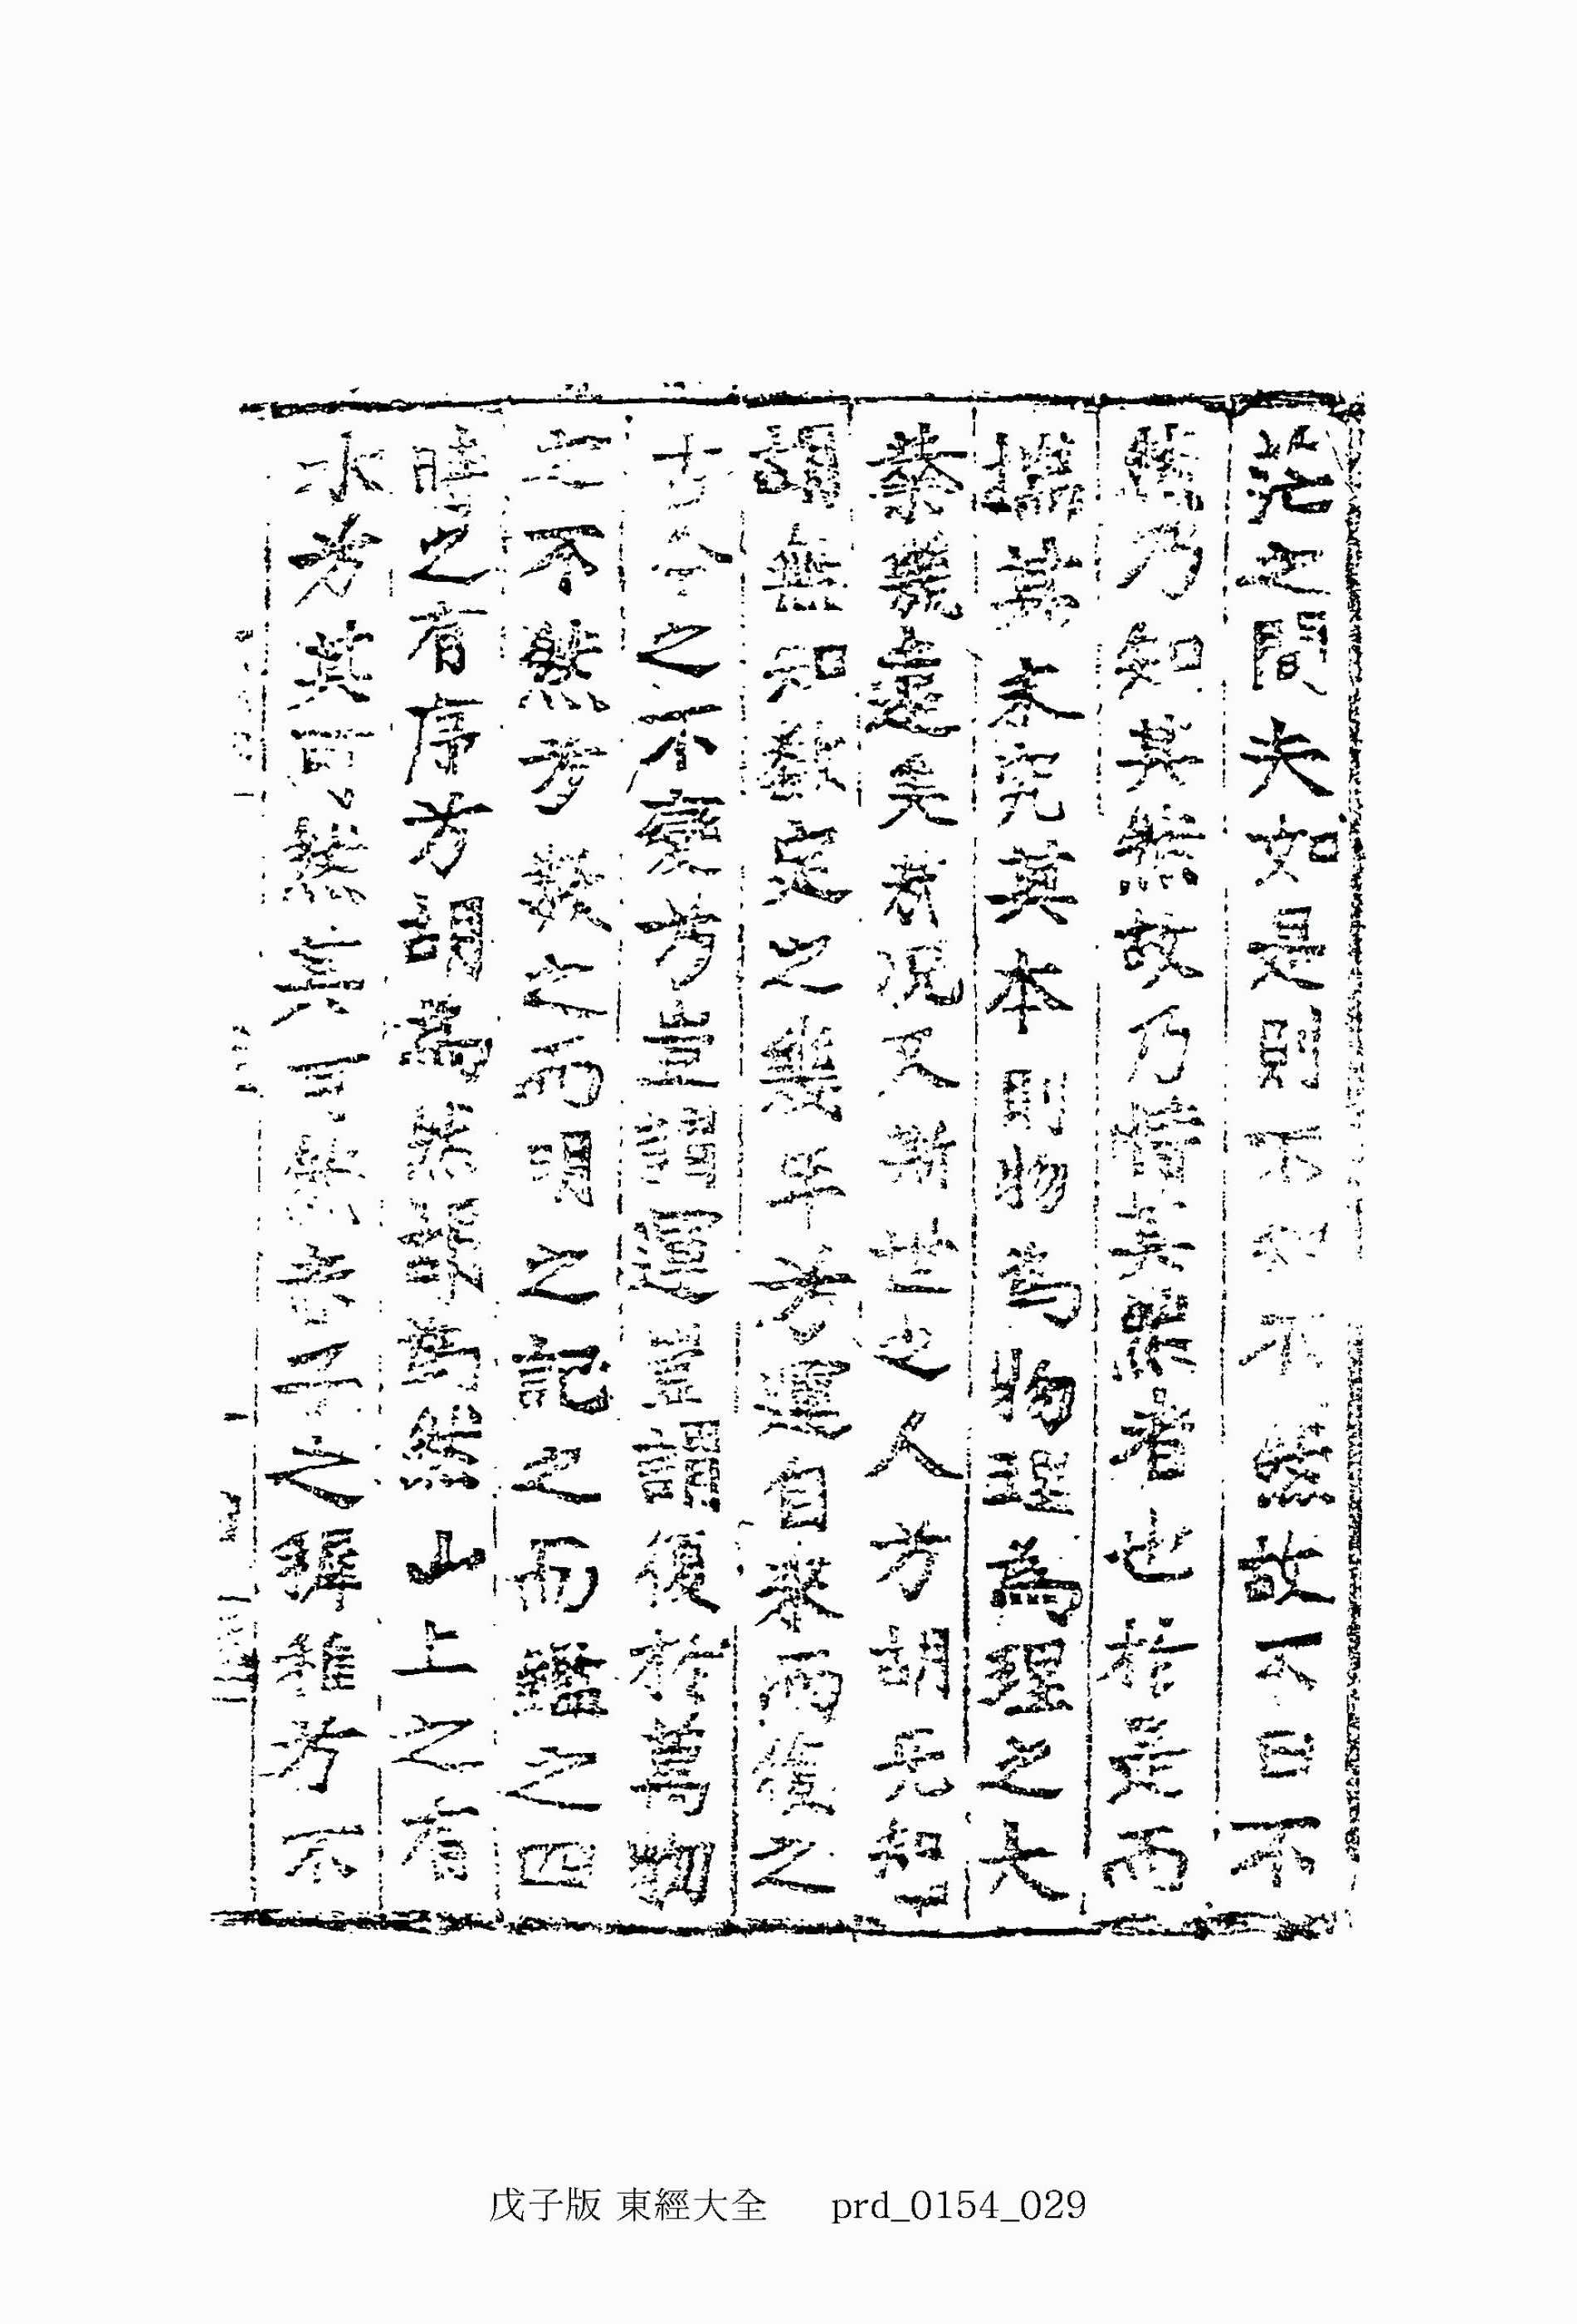 茫之間夫如是則不知不然故不曰不
然乃知其然故乃恃其然者也於是而
揣其末究其本則物爲物理爲理之大
業幾遠矣哉况又斯世之人兮胡無知
胡無知數定之幾年兮運自來而復之
古今之不變兮豈謂運豈謂復於萬物
之不然兮數之而明之記之而鑑之四
時之有序兮胡爲然胡爲然山上之有
水兮其可然其可然赤子之穉穉兮不
戊子版 東經大全 prd_0154_029